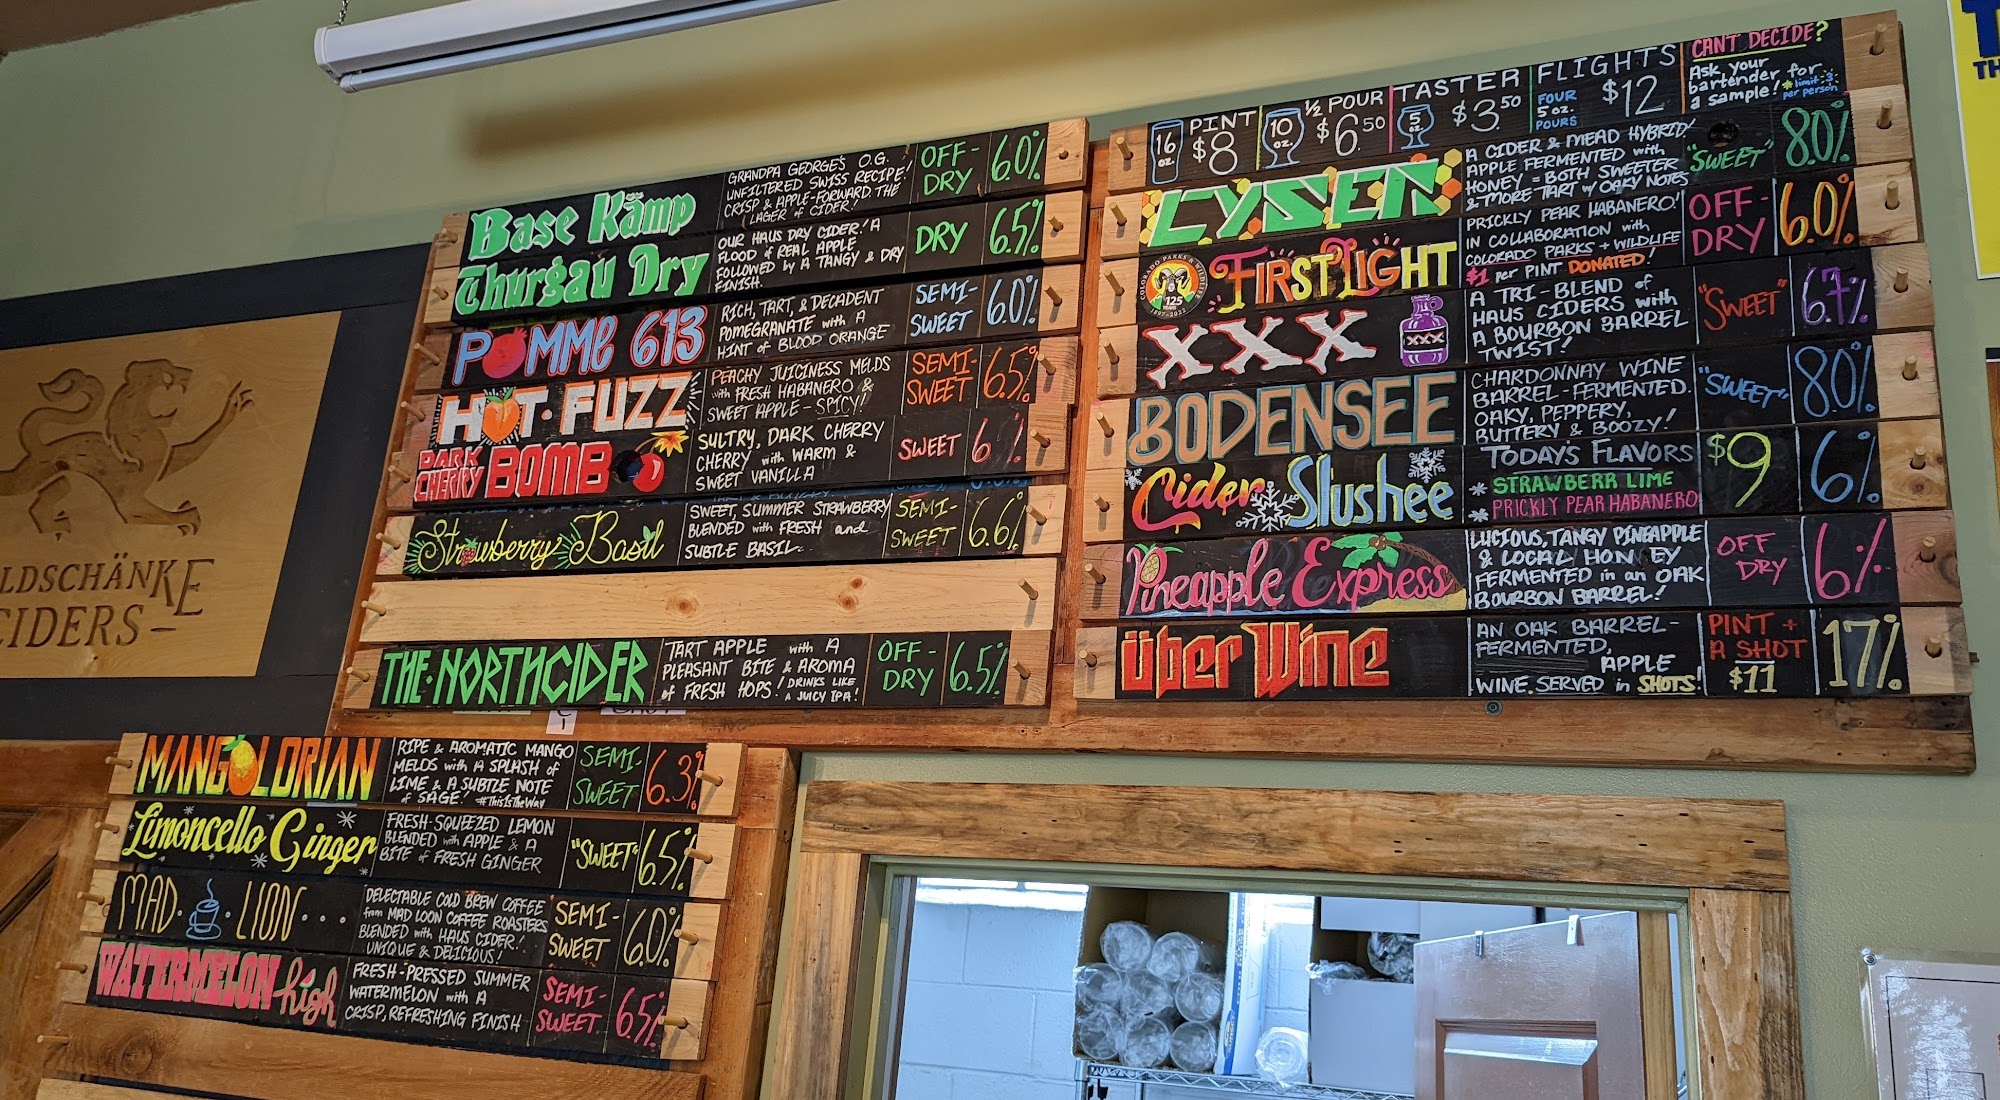 Base Kämp
GRANDPA GEORGE'S O.G.
UNFILTERED SWISS RECIPE!
CRISP & APPLE-FORWARD. THE
LAGER of CIDER!
OFF-
DRY
6.0%
Thurgau Dry
OUR HAUS DRY CIDER! A
FLOOD of REAL APPLE
FOLLOWED by A TANGY & DRY
FINISH.
DRY
6.5%
POMME 613
RICH, TART, & DECADENT
POMEGRANATE with A
HINT of BLOOD ORANGE
SEMI-
SWEET
6.0%
HOT·FUZZ
PEACHY JUICINESS MELDS
with FRESH HABANERO &
SWEET APPLE - SPICY!
SEMI-
SWEET
6.5%
DARK
CHERRY
BOMB
SULTRY, DARK CHERRY
CHERRY with WARM &
SWEET VANILLA
SWEET
6 %
Strawberry Basil
SWEET, SUMMER STRAWBERRY
BLENDED with FRESH and
SUBTLE BASIL
SEMI-
SWEET
6.6%
THE·NORTHCIDER
TART APPLE with A
PLEASANT BITE & AROMA
of FRESH HOPS! DRINKS LIKE
A JUICY IPA!
OFF-
DRY
6.5%
MANGOLORIAN
RIPE & AROMATIC MANGO
MELDS with A SPLASH of
LIME & A SUBTLE NOTE
of SAGE! #ThisIsTheWay
SEMI-
SWEET
6.3%
Limoncello Ginger
FRESH-SQUEEZED LEMON
BLENDED with APPLE & A
BITE of FRESH GINGER
"SWEET"
6.5%
MAD·LION...
DELECTABLE COLD BREW COFFEE
from MAD LOON COFFEE ROASTERS
BLENDED with HAUS CIDER!
UNIQUE & DELICIOUS!
SEMI-
SWEET
6.0%
WATERMELON high
FRESH-PRESSED SUMMER
WATERMELON with A
CRISP, REFRESHING FINISH
SEMI-
SWEET
6.5%
16
oz.
PINT
$8
10
oz.
½ POUR
$6.50
5
oz.
TASTER
$3.50
FLIGHTS
FOUR
5 oz.
POURS
$12
CAN'T DECIDE?
Ask your
bartender for
a sample! *limit 3
per person
LYSER
A CIDER & MEAD HYBRID!
APPLE FERMENTED with
HONEY = BOTH SWEETER
& MORE TART w/ OAKY NOTES
"SWEET"
8.0%
COLORADO PARKS & WILDLIFE
125
YEARS
1897-2022
FIRST LIGHT
PRICKLY PEAR HABANERO!
IN COLLABORATION with
COLORADO PARKS + WILDLIFE
$1 per PINT DONATED!
OFF-
DRY
6.0%
XXX
XXX
A TRI-BLEND of
HAUS CIDERS with
A BOURBON BARREL
TWIST!
"SWEET"
6.7%
BODENSEE
CHARDONNAY WINE
BARREL-FERMENTED.
OAKY, PEPPERY,
BUTTERY & BOOZY!
"SWEET"
8.0%
Cider Slushee
TODAY'S FLAVORS
* STRAWBERR LIME
* PRICKLY PEAR HABANERO
$9
6%
Pineapple Express
LUCIOUS, TANGY PINEAPPLE
& LOCAL HON EY
FERMENTED in an OAK
BOURBON BARREL!
OFF
DRY
6%
über Wine
AN OAK BARREL-
FERMENTED,
APPLE
WINE. SERVED in SHOTS!
PINT +
A SHOT
$11
17%
LDSCHÄNKE
CIDERS-